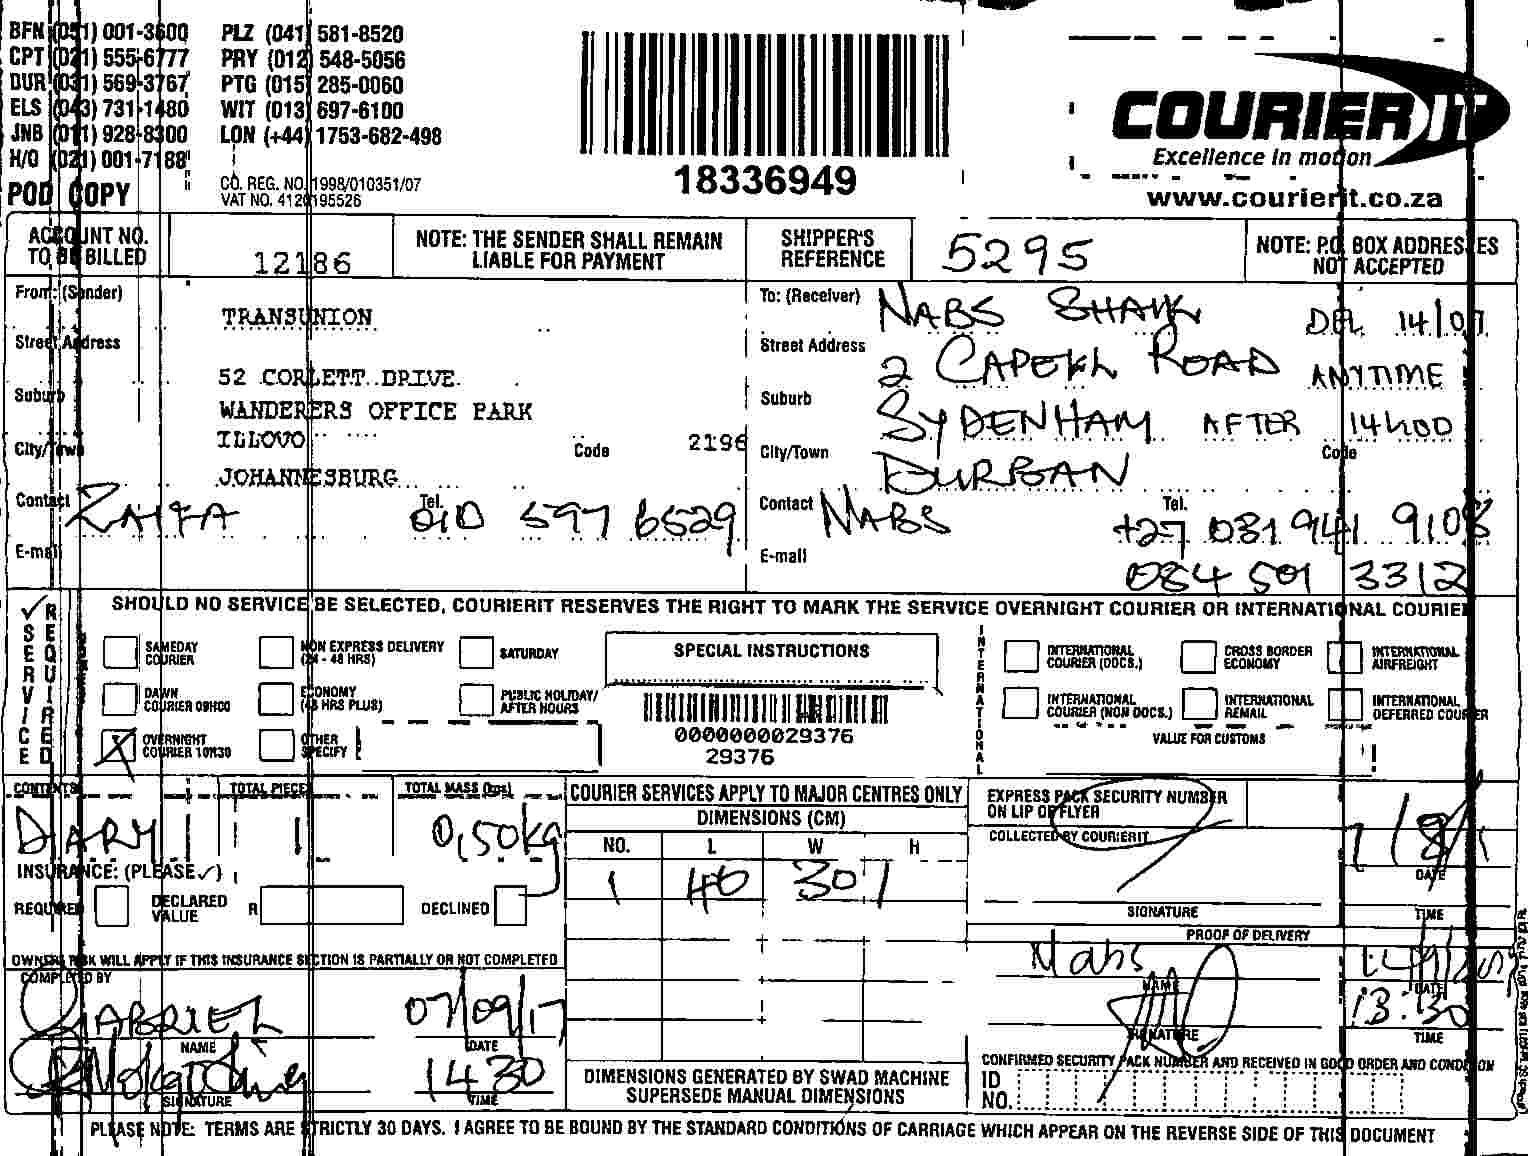 BFN (051) 001-3600 PLZ (041) 581-8520
CPT (021) 555-6777 PRY (012) 548-5056
DUR (031) 569-3767 PTG (015) 285-0060
ELS (043) 731-1480 WIT (013) 697-6100
JNB (011) 928-8300 LON (+44) 1753-682-498
H/O (021) 001-7188
POD COPY
CO. REG. NO. 1998/010351/07
VAT NO. 4120195526
18336949
COURIER IT
Excellence in motion
www.courierit.co.za
ACCOUNT NO. TO BE BILLED
12186
NOTE: THE SENDER SHALL REMAIN
LIABLE FOR PAYMENT
SHIPPER'S
REFERENCE
5295
NOTE: P.O. BOX ADDRESSES
NOT ACCEPTED
From: (Sender)
TRANSUNION
Street Address
52 CORLETT DRIVE
Suburb
WANDERERS OFFICE PARK
ILLOVO
City/Town
Code 2196
JOHANNESBURG
Contact
Tel. 010 597 6529
E-mail
To: (Receiver) NABS SHAIK DEL 14/07
Street Address 2 ROAD ANYTIME
Suburb SYDENHAM AFTER 14h00
City/Town DURBAN Code
Contact NABS Tel. +27 031 941 9108
E-mail 084 501 3312
SERVICE REQUIRED
SHOULD NO SERVICE BE SELECTED, COURIERIT RESERVES THE RIGHT TO MARK THE SERVICE OVERNIGHT COURIER OR INTERNATIONAL COURIER
SAMEDAY COURIER
NON EXPRESS DELIVERY (24 - 48 HRS)
SATURDAY
DAWN COURIER 09H00
ECONOMY (48 HRS PLUS)
PUBLIC HOLIDAY/ AFTER HOURS
OVERNIGHT COURIER 10H30
OTHER SPECIFY
SPECIAL INSTRUCTIONS
0000000029376
29376
INTERNATIONAL
INTERNATIONAL COURIER (DOCS.)
CROSS BORDER ECONOMY
INTERNATIONAL AIRFREIGHT
INTERNATIONAL COURIER (NON DOCS.)
INTERNATIONAL REMAIL
INTERNATIONAL DEFERRED COURIER
VALUE FOR CUSTOMS
CONTENTS TOTAL PIECES TOTAL MASS (kgs)
DIARY 1 0,50kg
INSURANCE: (PLEASE ✓)
REQUIRED DECLARED VALUE R DECLINED
OWNERS RISK WILL APPLY IF THIS INSURANCE SECTION IS PARTIALLY OR NOT COMPLETED
COMPLETED BY
GABRIEL 07/09/17
NAME DATE
1430
SIGNATURE TIME
COURIER SERVICES APPLY TO MAJOR CENTRES ONLY
DIMENSIONS (CM)
NO. L W H
1 40 30 1
DIMENSIONS GENERATED BY SWAD MACHINE
SUPERSEDE MANUAL DIMENSIONS
EXPRESS PACK SECURITY NUMBER
ON LIP OF FLYER
COLLECTED BY COURIERIT
DATE
SIGNATURE TIME
PROOF OF DELIVERY
Nabs
NAME DATE
13:30
SIGNATURE TIME
CONFIRMED SECURITY PACK NUMBER AND RECEIVED IN GOOD ORDER AND CONDITION
ID NO.
PLEASE NOTE: TERMS ARE STRICTLY 30 DAYS. I AGREE TO BE BOUND BY THE STANDARD CONDITIONS OF CARRIAGE WHICH APPEAR ON THE REVERSE SIDE OF THIS DOCUMENT